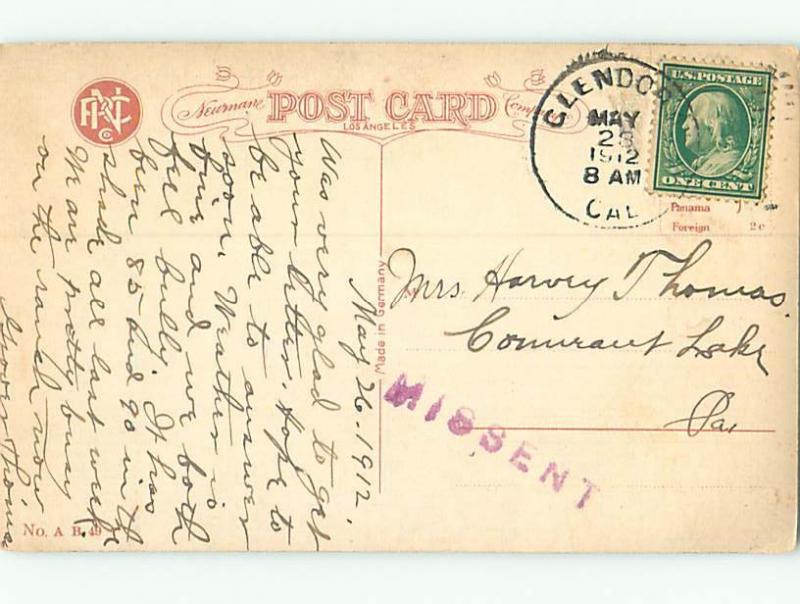 PNC
Co
Newman POST CARD Company
LOS ANGELES
GLENDORA
MAY
28
1912
8 AM
CAL
U.S. POSTAGE
ONE CENT
Panama
Foreign 2c
Made in Germany
May 26 - 1912.
Was very glad to get
your letter. Hope to
be able to answer
soon. Weather is
fine and we both
feel bully. It has
been 85 and 90 in the
shade all last week
M are pretty busy
on the ranch now
Thomas
Mrs. Harvey Thomas.
Conneaut Lake
Pa.
MISSENT
No. A B. 49